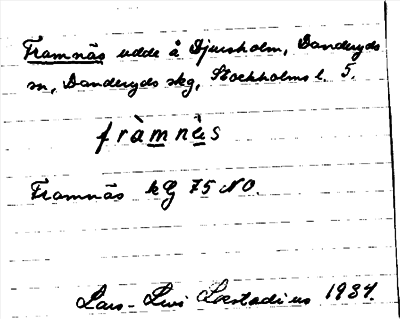 Framnäs udde å Djursholm, Danderyds
sn, Danderyds skg, Stockholms l. 5.
fràmnä̀s
Framnäs kG 75 NO.
Lars-Levi Læstadius 1934.